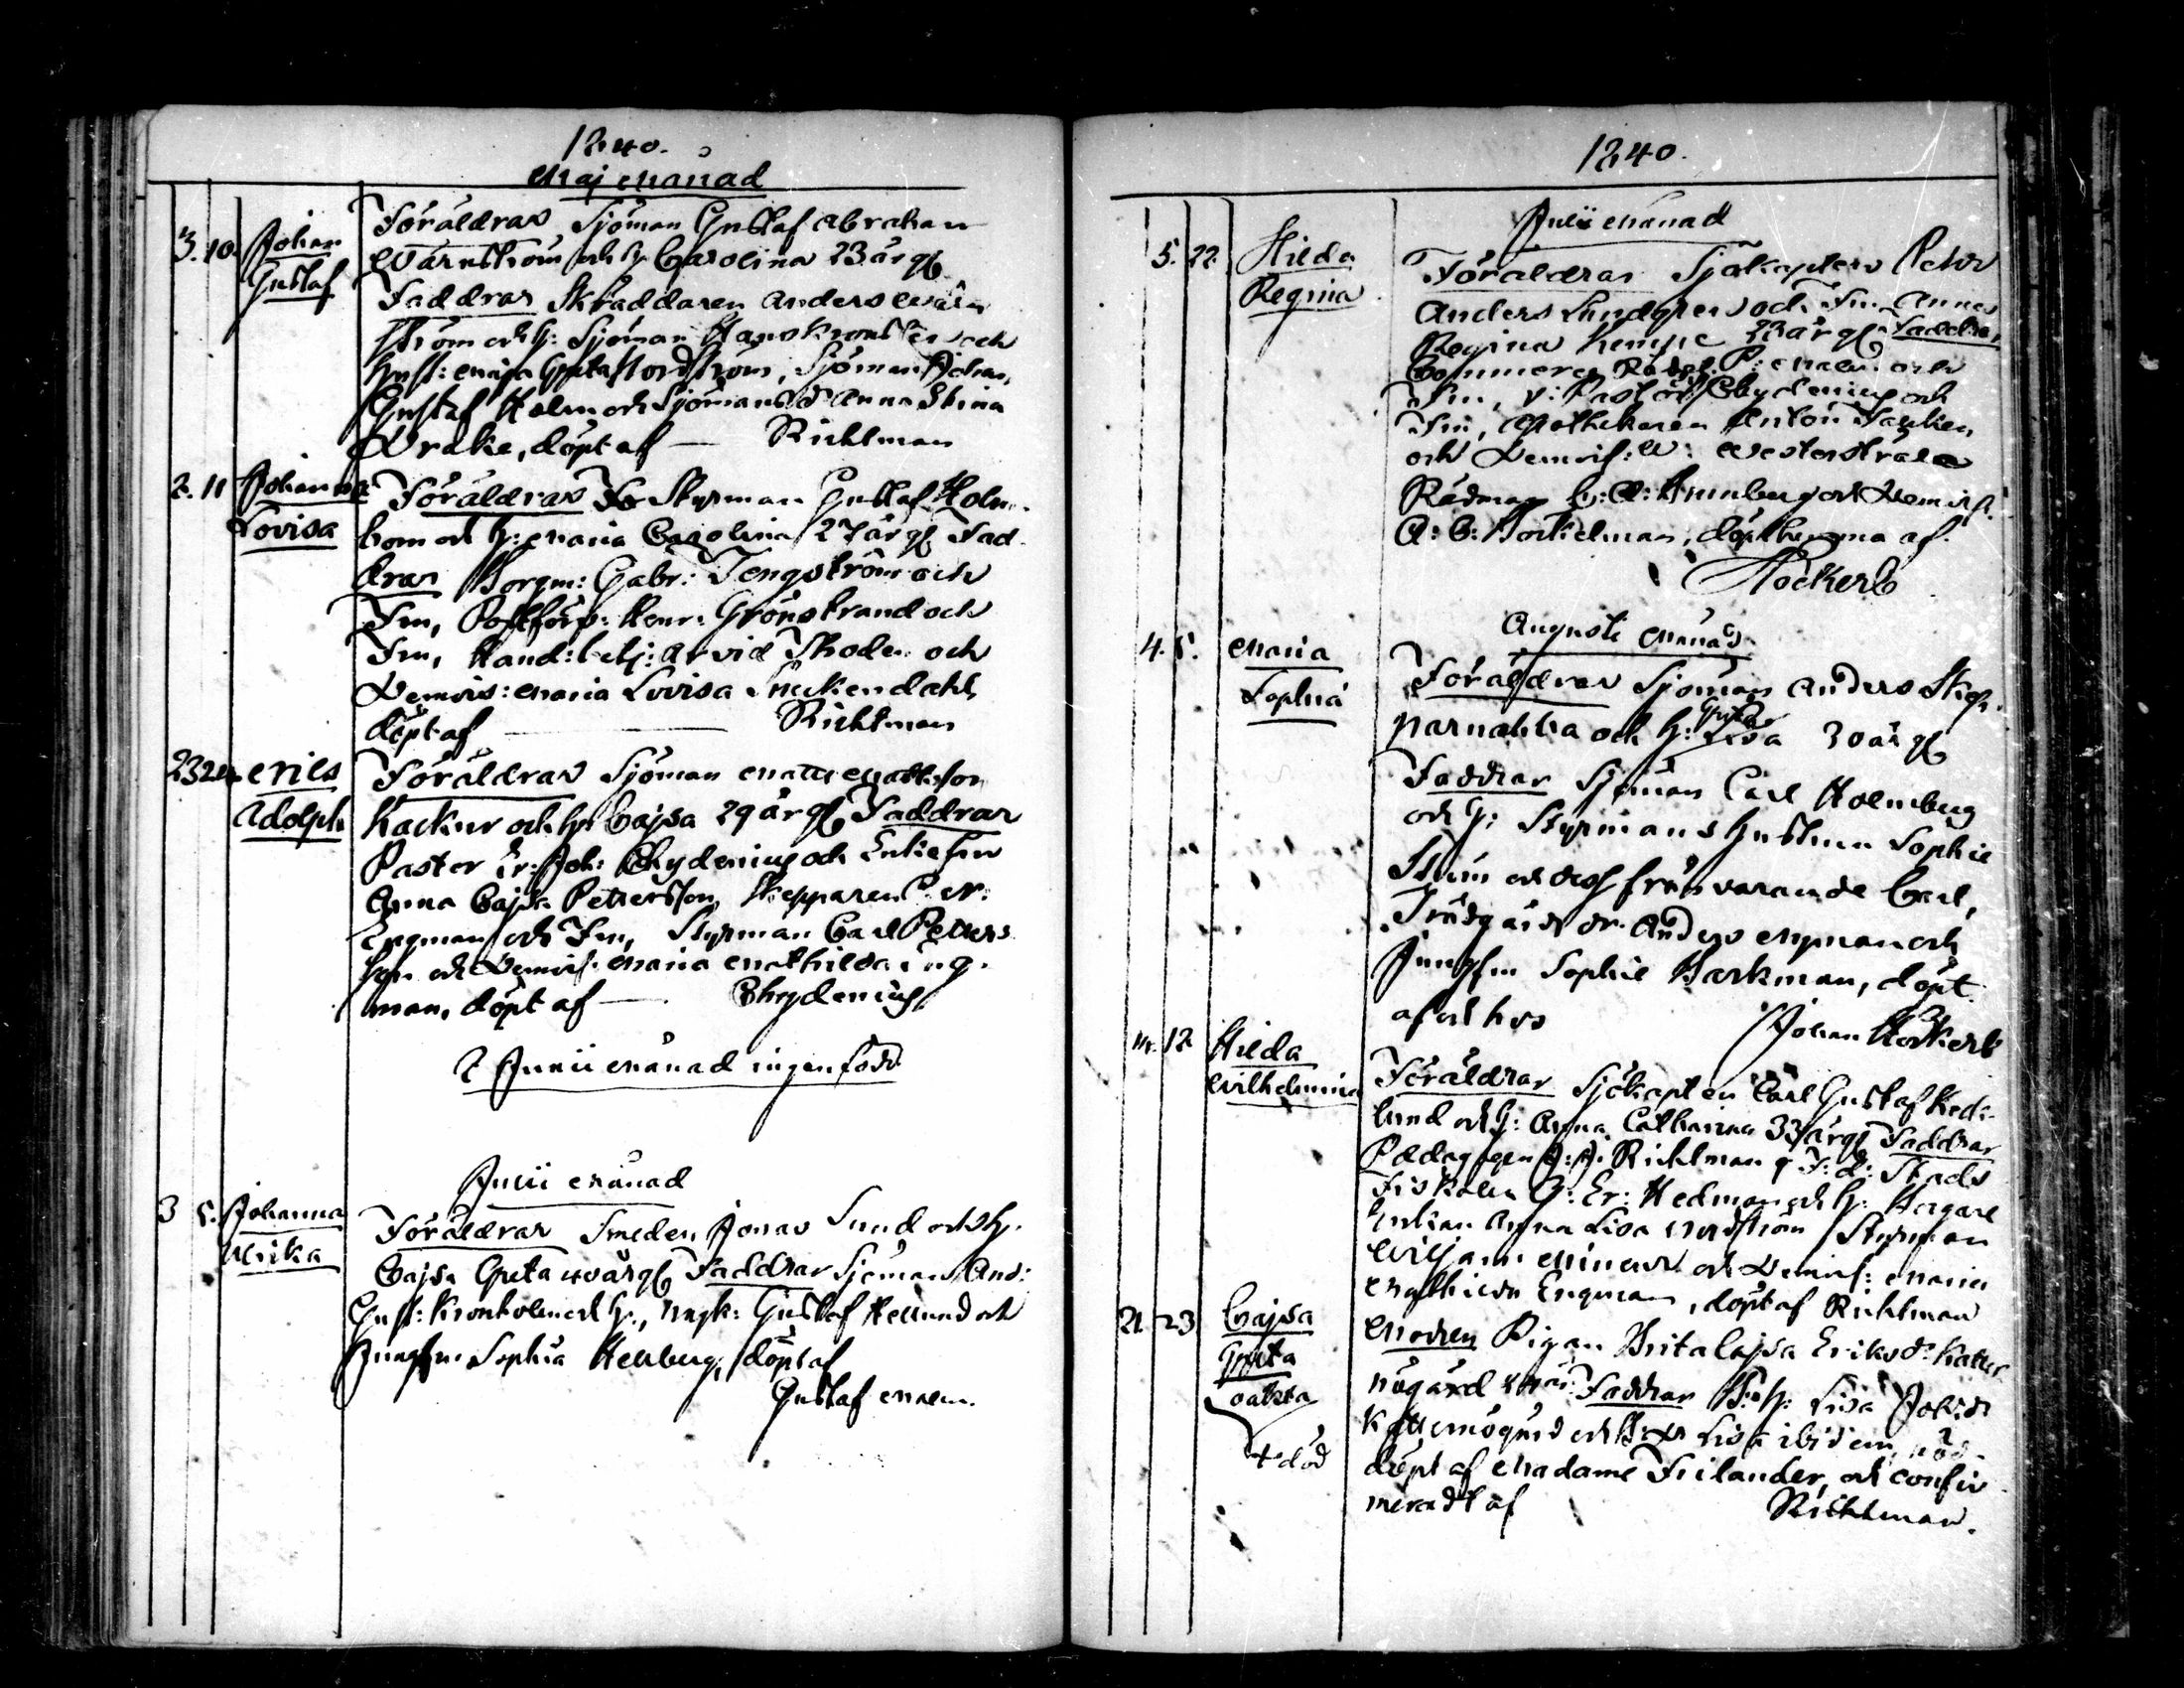 1840.
Maj Månad
3. 10. Johan Gustaf
Föräldrar Sjöman Gustaf Abraham
Wärnström och h. Carolina 23 år gl.
Faddrar Skräddaren Anders Wärn
ström och h: Sjöman och
Hust: Maja Greta Nordström, Sjöman Johan
Gustaf Holm och Sjömans D. Anna Stina
Drake, döpt af — Richtman
2. 11 Johanna Lovisa
Föräldrar Styrman Gustaf Holm
bom och h: Maria Carolina 27 år gl. Fad
drar Borgm: Gabr: Tengström och
Fru, Postförv: Henr: Grönstrand och
Fru, Hand: betj: Arvid Thoden och
Demois: Maria Lovisa Snickendahl,
döpt af — Richtman
23 24 Nils Adolph
Föräldrar Sjöman Matts Mattsson
Kackur och h: Cajsa 29 år gl. Faddrar
Pastor Er: Joh: Chydenius och Enkefru
Anna Cajsa Pettersson, Skepparen C. M:
Engman och Fru, Styrman Carl Petters
son och Demois: Maria Mathilda Eng
man, döpt af — Chydenius
I Junii Månad ingen född
Julii Månad
3 5. Johanna Ulrika
Föräldrar Smeden Jonas Sund och h.
Cajsa Greta 40 år gl. Faddrar Sjöman And:
Gust: Kronholm och h:, Ungk: Gustaf Hellund och
Jungfru Sophia Hellberg, döpt af
Gustaf Malm.
1840.
Julii Månad
5. 22. Hilda Regina
Föräldrar Sjökapten Petr
Anders Lundgren och Fru Anna
Regina Kempe 23 år gl. Faddrar
Commerce Rådet P: Malm och
Fru, V: Pastor Chydenius och
Fru, Apothekaren Anton
och Demois: W: Westerstråle
Rådman och Demois:
döpt hemma af
Höckert
Augusti Månad
4. 5. Maria Sophia
Föräldrar Sjöman Anders Skep
parnabba och h: Greta Lisa 30 år gl.
Faddrar Sjöman Carl Holmberg
och h: Styrmans hustrun Sophie
och dess frånvarande Carl,
Trädgårds dr. Anders Nyman och
Jungfru Sophie Barkman, döpt
af och hos Johan Höckert
12 Hilda Wilhelmina
Föräldrar Sjökapten Carl Gustaf Hed
lund och h: Anna Catharina 33 år gl. Faddrar
Pædagogen J: J. Richtman, T: f: Stads
Fiskalen J: Er: Hedman och h:
Enkan Anna Lisa Nordström, Styrman
Wiljam och Demois: Maria
Mathilda Engman, döpt af Richtman
21 23 Cajsa Greta oäkta
† död
Modren Pigan Brita Cajsa Eriksdr Katter
nögård år. Faddrar B: h: Lisa Joh:dr
Katternögård och Lisa ibidem, nöd
döpt af Madame Frilander, och confir
meradt af Richtman.